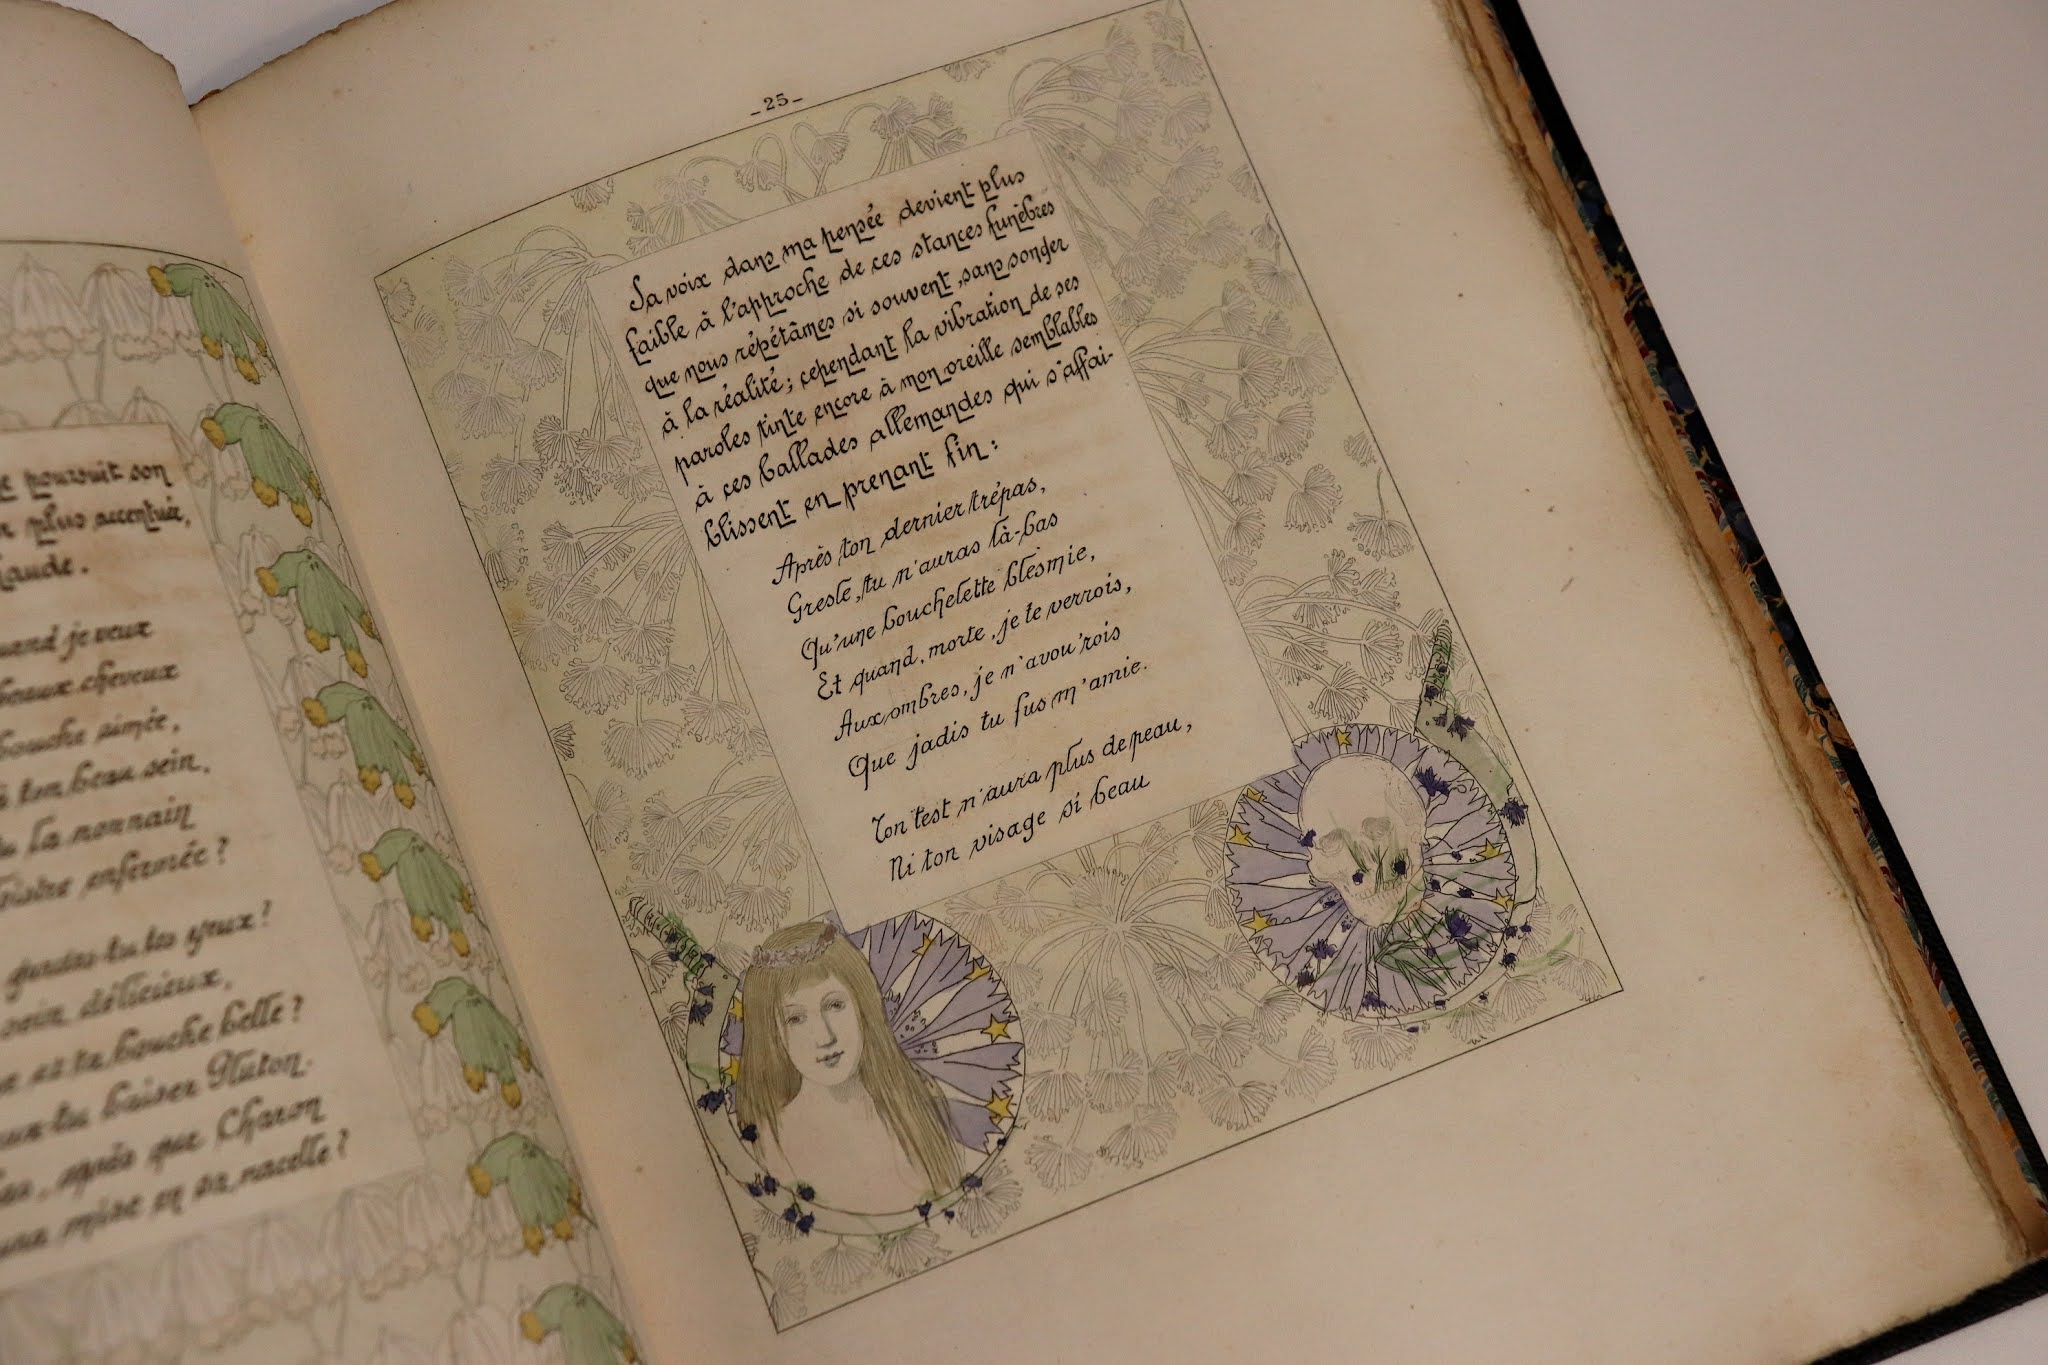 e poursuit son
n plus accentué,
laude.
uand je veux
beaux cheveux
bouche aimée,
à ton beau sein,
tu la nonnain
loistre enfermée ?
gardes-tu tes yeux ?
sein délicieux,
e et ta bouche belle ?
eux-tu baiser Pluton
bas, après que Charon
aura mise en sa nacelle ?
_25_
Sa voix dans ma pensée devient plus
faible à l'approche de ces stances funèbres
que nous répétâmes si souvent, sans songer
à la réalité ; cependant la vibration de ses
paroles tinte encore à mon oreille semblables
à ces ballades allemandes qui s'affai-
blissent en prenant fin :
Après ton dernier trépas,
Gresle, tu n'auras là-bas
Qu'une bouchelette blesmie,
Et quand, morte, je te verrois,
Aux ombres, je n'avou'rois
Que jadis tu fus m'amie.
Ton test n'aura plus de peau,
Ni ton visage si beau